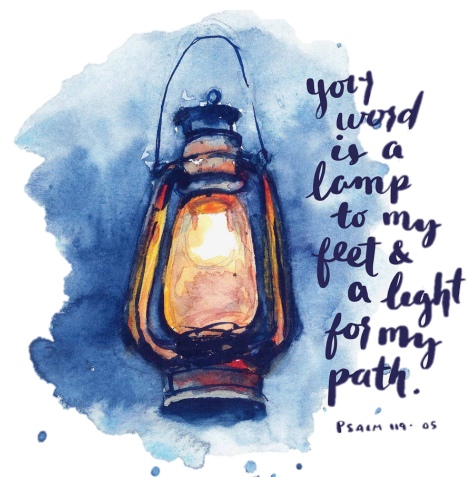 your
word
is a
lamp
to my
feet &
a light
for my
path.
PSALM 119. 05